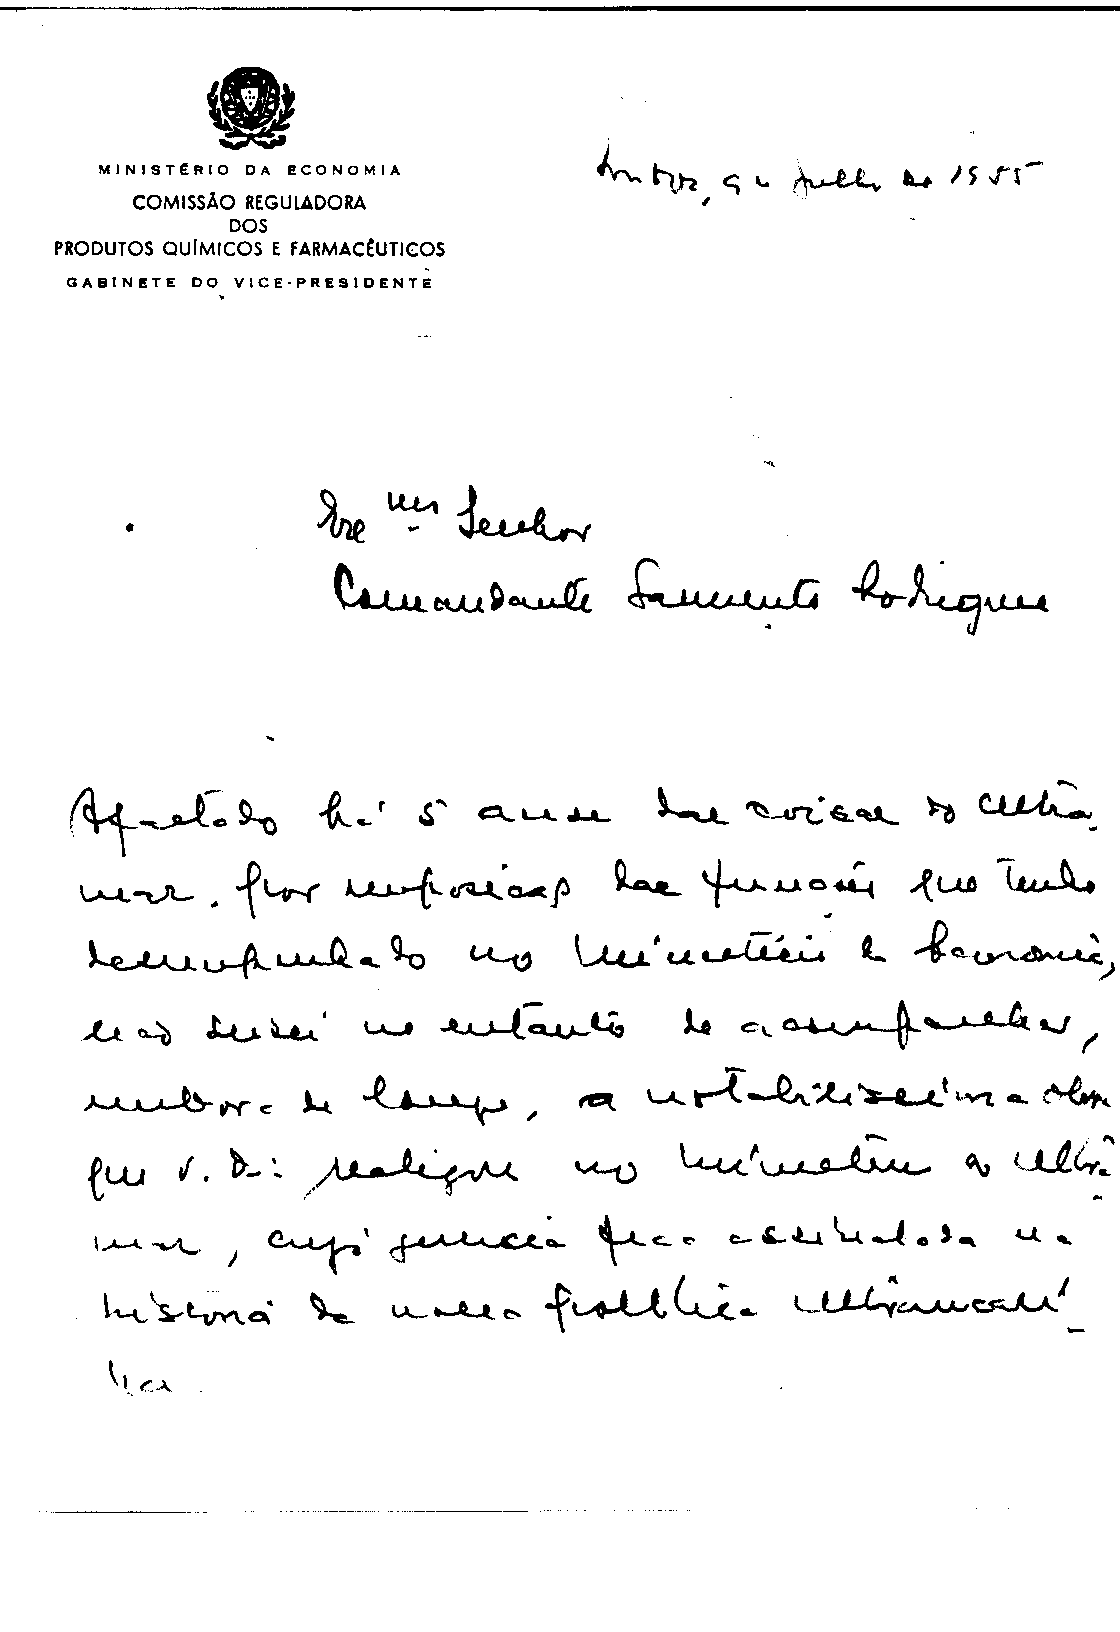 MINISTÉRIO DA ECONOMIA
COMISSÃO REGULADORA
DOS
PRODUTOS QUÍMICOS E FARMACÊUTICOS
GABINETE DO VICE-PRESIDENTE
Lisboa, 9 de Julho de 1955
Exc mo Senhor
Comandante Sarmento Rodrigues
Afastado há 5 anos das coisas do Ultra-
mar, por imposição das funções que tenho
desempenhado no Ministério da Economia,
não deixei no entanto de acompanhar,
embora de longe, a notabilissima obra
que V. Ex. realizou no Ministério do Ultra-
mar, cuja gerencia fica assinalada na
história da nossa politica Ultramari-
na.